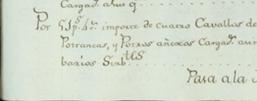 Cargad. año q
Por 51 p.s 4 r. importe de cuatro Cavallos de
Potrancas, y Potros anexos Cargad. aun
barios Sixb.tes
Pasa a la